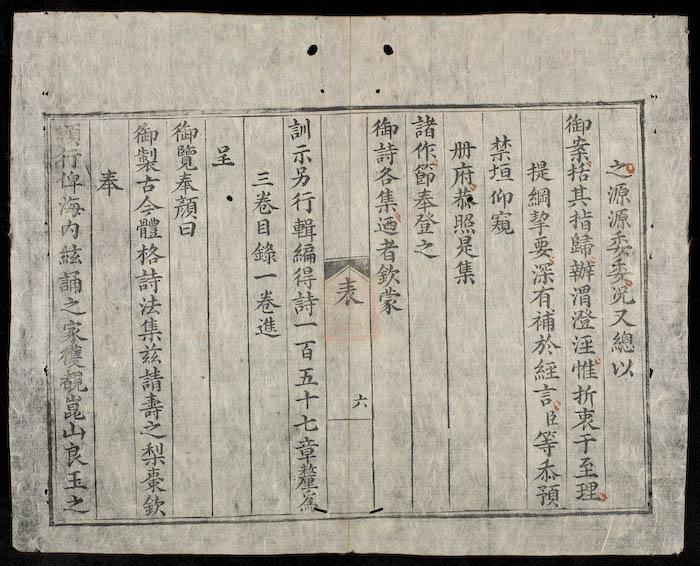 之源源委委況又總以
御案括其指歸辦渭澄涇惟折衷于至理
提綱挈要深有補於經言臣等忝預
禁垣仰窺
册府恭照是集
諸作節奉登之
御詩各集迺者欽蒙
表
六
訓示另行輯編得詩一百五十七章釐為
三卷目錄一卷進
呈
御覽奉顏曰
御製古今體格詩法集茲請壽之梨棗欽
奉
頒行俾海内絃誦之家獲覩崑山良玉之